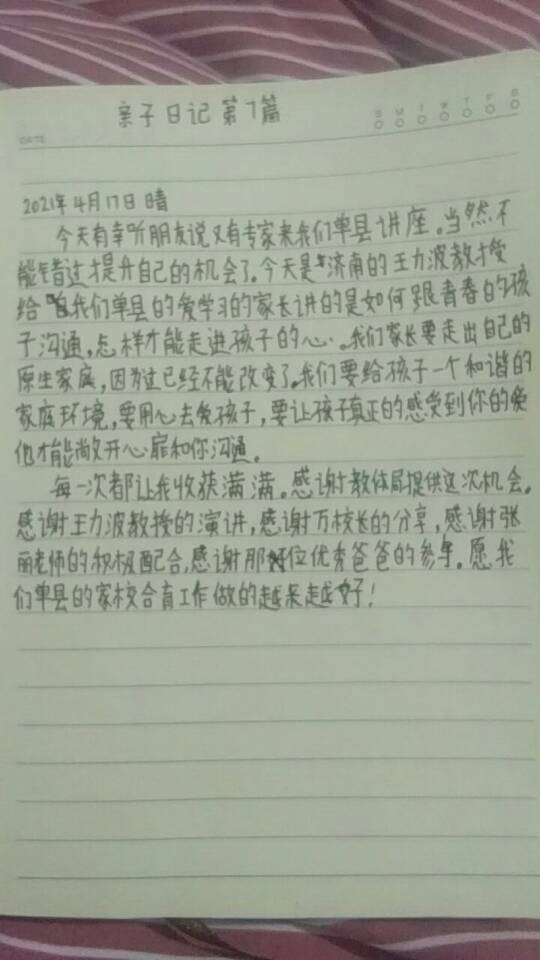 亲子日记 第7篇
S M T W T F S
DATE
2021年4月17日 晴
今天有幸听朋友说又有专家来我们单县讲座。当然不
能错过提升自己的机会了。今天是济南的王力波教授
给我们单县的爱学习的家长讲的是如何跟青春的孩
子沟通,怎样才能走进孩子的心。我们家长要走出自己的
原生家庭,因为这已经不能改变了。我们要给孩子一个和谐的
家庭环境,要用心去爱孩子,要让孩子真正的感受到你的爱
他才能敞开心扉和你沟通。
每一次都让我收获满满。感谢教体局提供这次机会。
感谢王力波教授的演讲,感谢万校长的分享,感谢张
丽老师的积极配合,感谢那位优秀爸爸的参与。愿我
们单县的家校合育工作做的越来越好!